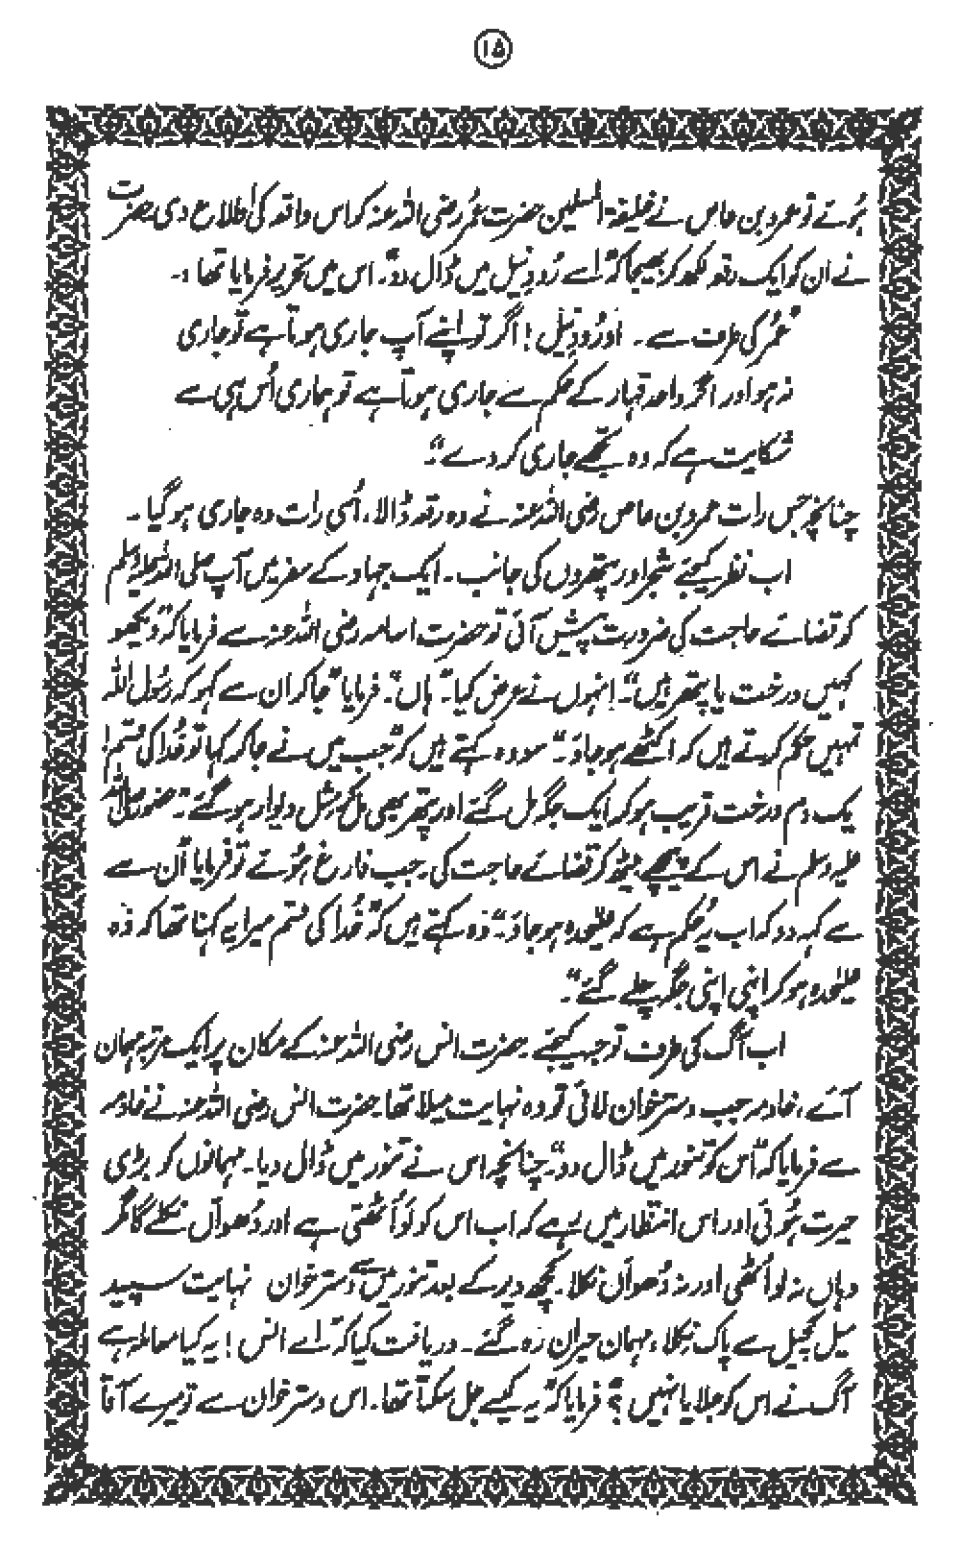 ۱۵
ہُوئے تو عمرو بن عاص نے خلیفۃ المسلمین حضرت عمُر رضی اللہ عنہ کو اس واقعہ کی اطلاع دی حضرت
نے ان کو ایک رقعہ لکھ کر بھیجا کہ ”اسے رُودِ نیل میں ڈال دو“۔ اس میں تحریر فرمایا تھا :۔
”عمُر کی طرف سے۔ او رُودِ نیل! اگر تو اپنے آپ جاری ہوتا ہے تو جاری
نہ ہو اور اگر واحد قہار کے حکم سے جاری ہوتا ہے تو ہماری اُس ہی سے
شکایت ہے کہ وہ تجھے جاری کر دے“۔
چنانچہ جس رات عمرو بن عاص رضی اللہ عنہ نے وہ رقعہ ڈالا، اُسی رات وہ جاری ہو گیا۔
اب نظر کیجئے شجر اور پتھروں کی جانب۔ ایک جہاد کے سفر میں آپ صلی اللہ علیہ وسلم
کو قضائے حاجت کی ضرورت پیش آئی تو حضرت اسامہ رضی اللہ عنہ سے فرمایا کہ ”دیکھو
کہیں درخت یا پتھر ہیں“۔ انہوں نے عرض کیا۔ ”ہاں“۔ فرمایا ”جا کر ان سے کہو کہ رسُول اللہ
تمہیں حکم کرتے ہیں کہ اکٹھے ہو جاؤ۔“ سو وہ کہتے ہیں کہ ”جب میں نے جا کر کہا تو خُدا کی قسم!
یک دم درخت قریب ہو کر ایک جگہ مل گئے اور پتھر بھی مل کر مثل دیوار ہو گئے“۔ حضور صلی اللہ
علیہ وسلم نے اس کے پیچھے بیٹھ کر قضائے حاجت کی۔ جب فارغ ہُوئے تو فرمایا ”اُن سے
سے کہہ دو کہ اب یہ حُکم ہے کہ علیٰحدہ ہو جاؤ“ وہ کہتے ہیں کہ ”خُدا کی قسم میرا یہ کہنا تھا کہ وُہ
علیٰحدہ ہو کر اپنی اپنی جگہ چلے گئے“۔
اب آگ کی طرف توجہ کیجئے۔ حضرت انس رضی اللہ عنہ کے مکان پر ایک مرتبہ مہمان
آئے، خادمہ جب دسترخوان لائی تو وہ نہایت میلا تھا۔ حضرت انس رضی اللہ عنہ نے خادمہ
سے فرمایا کہ ”اس کو تنور میں ڈال دو“۔ چنانچہ اس نے تنور میں ڈال دیا۔ مہمانوں کو بڑی
حیرت ہُوئی اور اس انتظار میں رہے کہ اب اس کو لَو اُٹھتی ہے اور دُھواں نکلے گا مگر
وہاں نہ لو اُٹھی اور نہ دُھواں نکلا۔ کچھ دیر کے بعد تنور میں سے دسترخوان نہایت سپید
میل کچیل سے پاک نکلا، مہمان حیران رہ گئے۔ دریافت کیا کہ ”اے انس! یہ کیا معاملہ ہے
آگ نے اس کو جلایا نہیں؟“ فرمایا کہ ”یہ کیسے جل سکتا تھا۔ اس دسترخوان سے تو میرے آقا